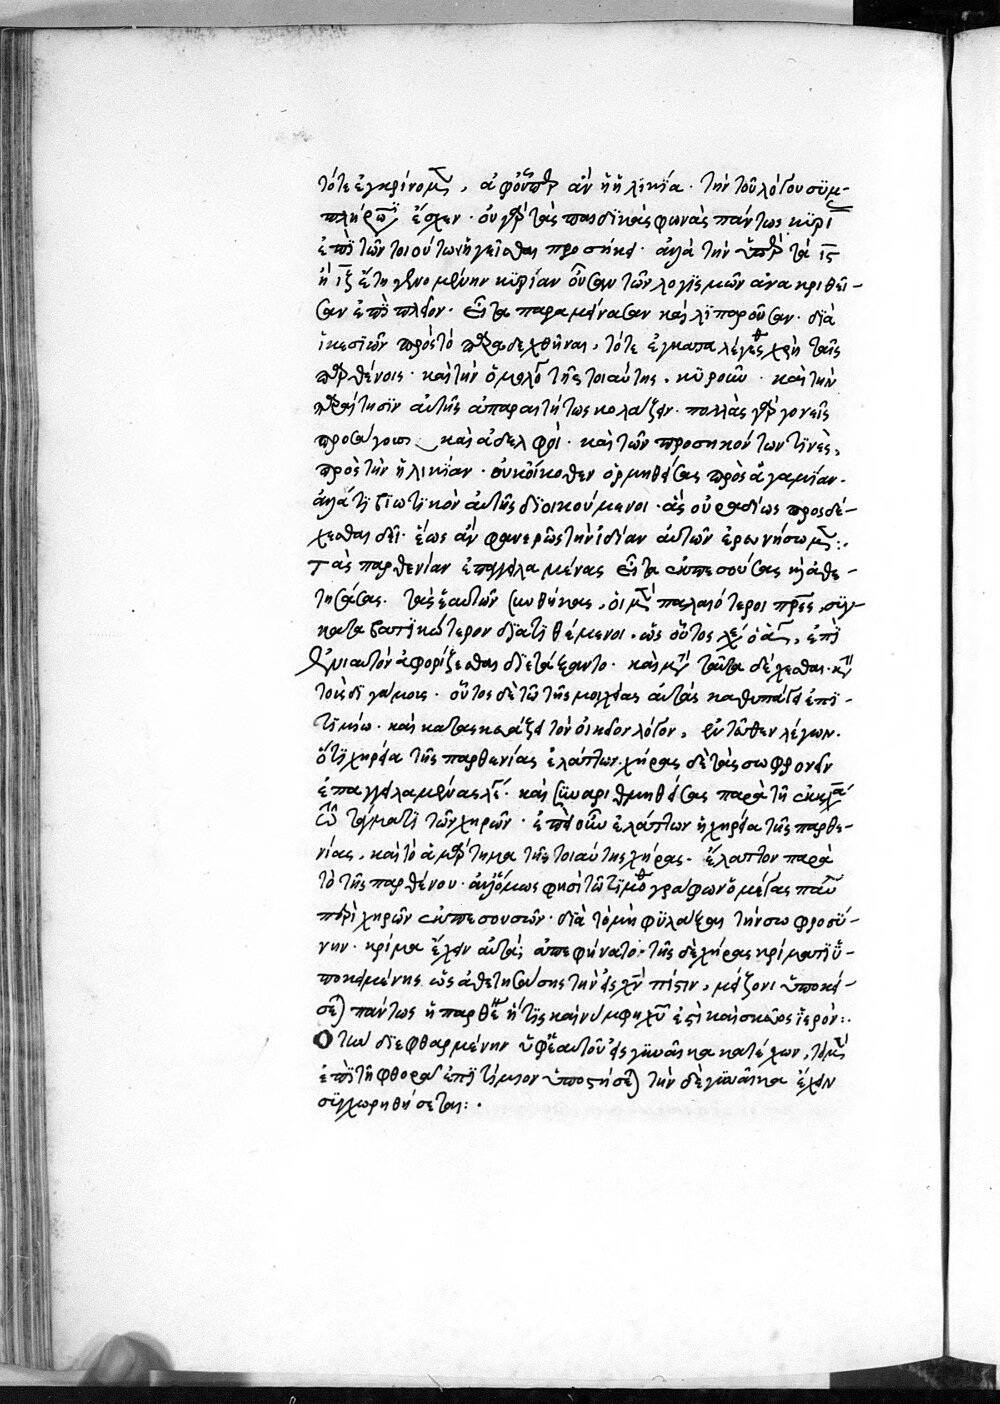 τότε ἐγκρίνομεν, ἀφοῦπερ ἂν ἡ ἡλικία τὴν τοῦ λόγου συμ-
πλήρωσιν ἔσχεν· οὐ γὰρ τὰς παιδικὰς φωνὰς πάντως κυρί
ἐπὶ τῶν τοιούτων ἡγεῖσθαι προσήκει· ἀλλὰ τὴν ὑπὲρ τὰ ιϛ
ἢ ιζ ἔτη γενομένην κυρίαν οὖσαν τῶν λογισμῶν ἀνακριθεῖ-
σαν ἐπὶ πλέον· εἶτα παραμείνασαν καὶ λιπαροῦσαν· διὰ
ἱκεσιῶν πρὸς τὸ παραδεχθῆναι, τότε ἐγκαταλέγεσθαι χρὴ ταῖς
παρθένοις· καὶ τὴν ὁμολογίαν τῆς τοιαύτης κυροῦν· καὶ τὴν
ἀθέτησιν αὐτῆς ἀπαραιτήτως κολάζειν· πολλὰς γὰρ γονεῖς
προσάγουσι καὶ ἀδελφοὶ· καὶ τῶν προσηκόντων τινὲς,
πρὸ τῆς ἡλικίας· οὐκ οἴκοθεν ὁρμηθείσας πρὸς ἀγαμίαν·
ἀλλά τι βιωτικὸν αὐτῆς διοικούμενοι· ἃς οὐ ῥαδίως προσδέ-
χεσθαι δεῖ· ἕως ἂν φανερῶς τὴν ἰδίαν αὐτῶν ἐρευνήσωμεν:·
Τὰς παρθενίαν ἐπαγγειλαμένας εἶτα ἐκπεσούσας καὶ ἀθε-
τησάσας τὰς ἑαυτῶν συνθήκας, οἱ μὲν παλαιότεροι πατέρες, συγ-
καταβατικώτερον διατιθέμενοι, ὡς οὗτος λέγει ὁ ἅγιος, ἐπὶ
ἐνιαυτὸν ἀφορίζεσθαι διετάξαντο· καὶ μετὰ ταῦτα δέχεσθαι κατὰ
τοὺς διγάμους· οὗτος δὲ τῷ τῆς μοιχείας αὐτὰς καθυπάγει ἐπι-
τιμίῳ· καὶ κατασκευάζει τὸν οἰκεῖον λόγον, ἐντεῦθεν λέγων.
ὅτι χηρεία τῆς παρθενίας ἐλάττων· χήρας δὲ τὰς σωφρονεῖν
ἐπαγγειλαμένας λέγει· καὶ συναριθμηθείσας παρὰ τῆς ἐκκλησίας
τῷ τάγματι τῶν χηρῶν· ἐπεὶ οὖν ἐλάττων ἡ χηρεία τῆς παρθε-
νίας, καὶ τὸ ἁμάρτημα τῆς τοιαύτης χήρας· ἔλαττον παρὰ
τὸ τῆς παρθένου· ἀλλ' ὅμως φησὶ τῷ Τιμοθέῳ γράφων ὁ μέγας παῦλος
περὶ χηρῶν ἐκπεσουσῶν· διὰ τὸ μὴ φυλάξαι τὴν σωφροσύ-
νην· κρίμα ἔχειν αὐτάς ἀπεφήνατο· τῆς δὲ χήρας κρίματι ὑ-
ποκειμένης ὡς ἀθετησάσης τὴν εἰς χριστὸν πίστιν, μείζονι ὑποκεί-
σεται πάντως ἡ παρθένος ἥτις καὶ νύμφη χριστοῦ ἐστὶ καὶ σκεῦος ἱερόν:·
Ὁ τὴν διεφθαρμένην ὑφ' ἑαυτοῦ εἰς γυναῖκα κατέχων, τὸ μὲν
ἐπὶ τῇ φθορᾷ ἐπιτίμιον ὑποστήσεται τὴν δὲ γυναῖκα ἔχειν
συγχωρηθήσεται:·